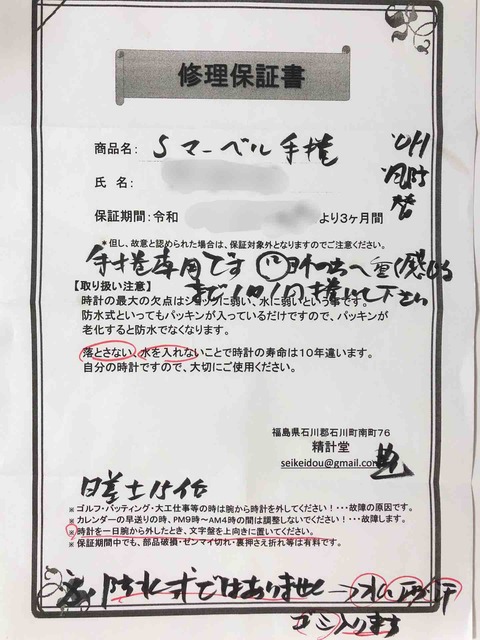 修理保証書
商品名: Sマーベル手捲
OH
風防
替
氏 名:
保証期間:令和 より3ケ月間
*但し、故意と認められた場合は、保証対象外となりますのでご注意ください。
手巻専用です
まで1日1回捲いて下さい
【取り扱い注意】
時計の最大の欠点はショックに弱い、水に弱いという事です。
防水式といってもパッキンが入っているだけですので、パッキンが
老化すると防水でなくなります。
落とさない、水を入れないことで時計の寿命は10年違います。
自分の時計ですので、大切にご使用ください。
福島県石川郡石川町南町76
精計堂
seikeidou@gmail.com
日差±15位
※ゴルフ・バッティング・大工仕事等の時は腕から時計を外してください!・・・故障の原因です。
※カレンダーの早送りの時、PM9時~AM4時の間は調整しないでください!・・・故障します。
※時計を一日腕から外したとき、文字盤を上向きに置いてください。
※保証期間中でも、部品破損・ゼンマイ切れ・裏押さえ折れ等は有料です。
防水式ではありません→水、汗
ゴミ入ります